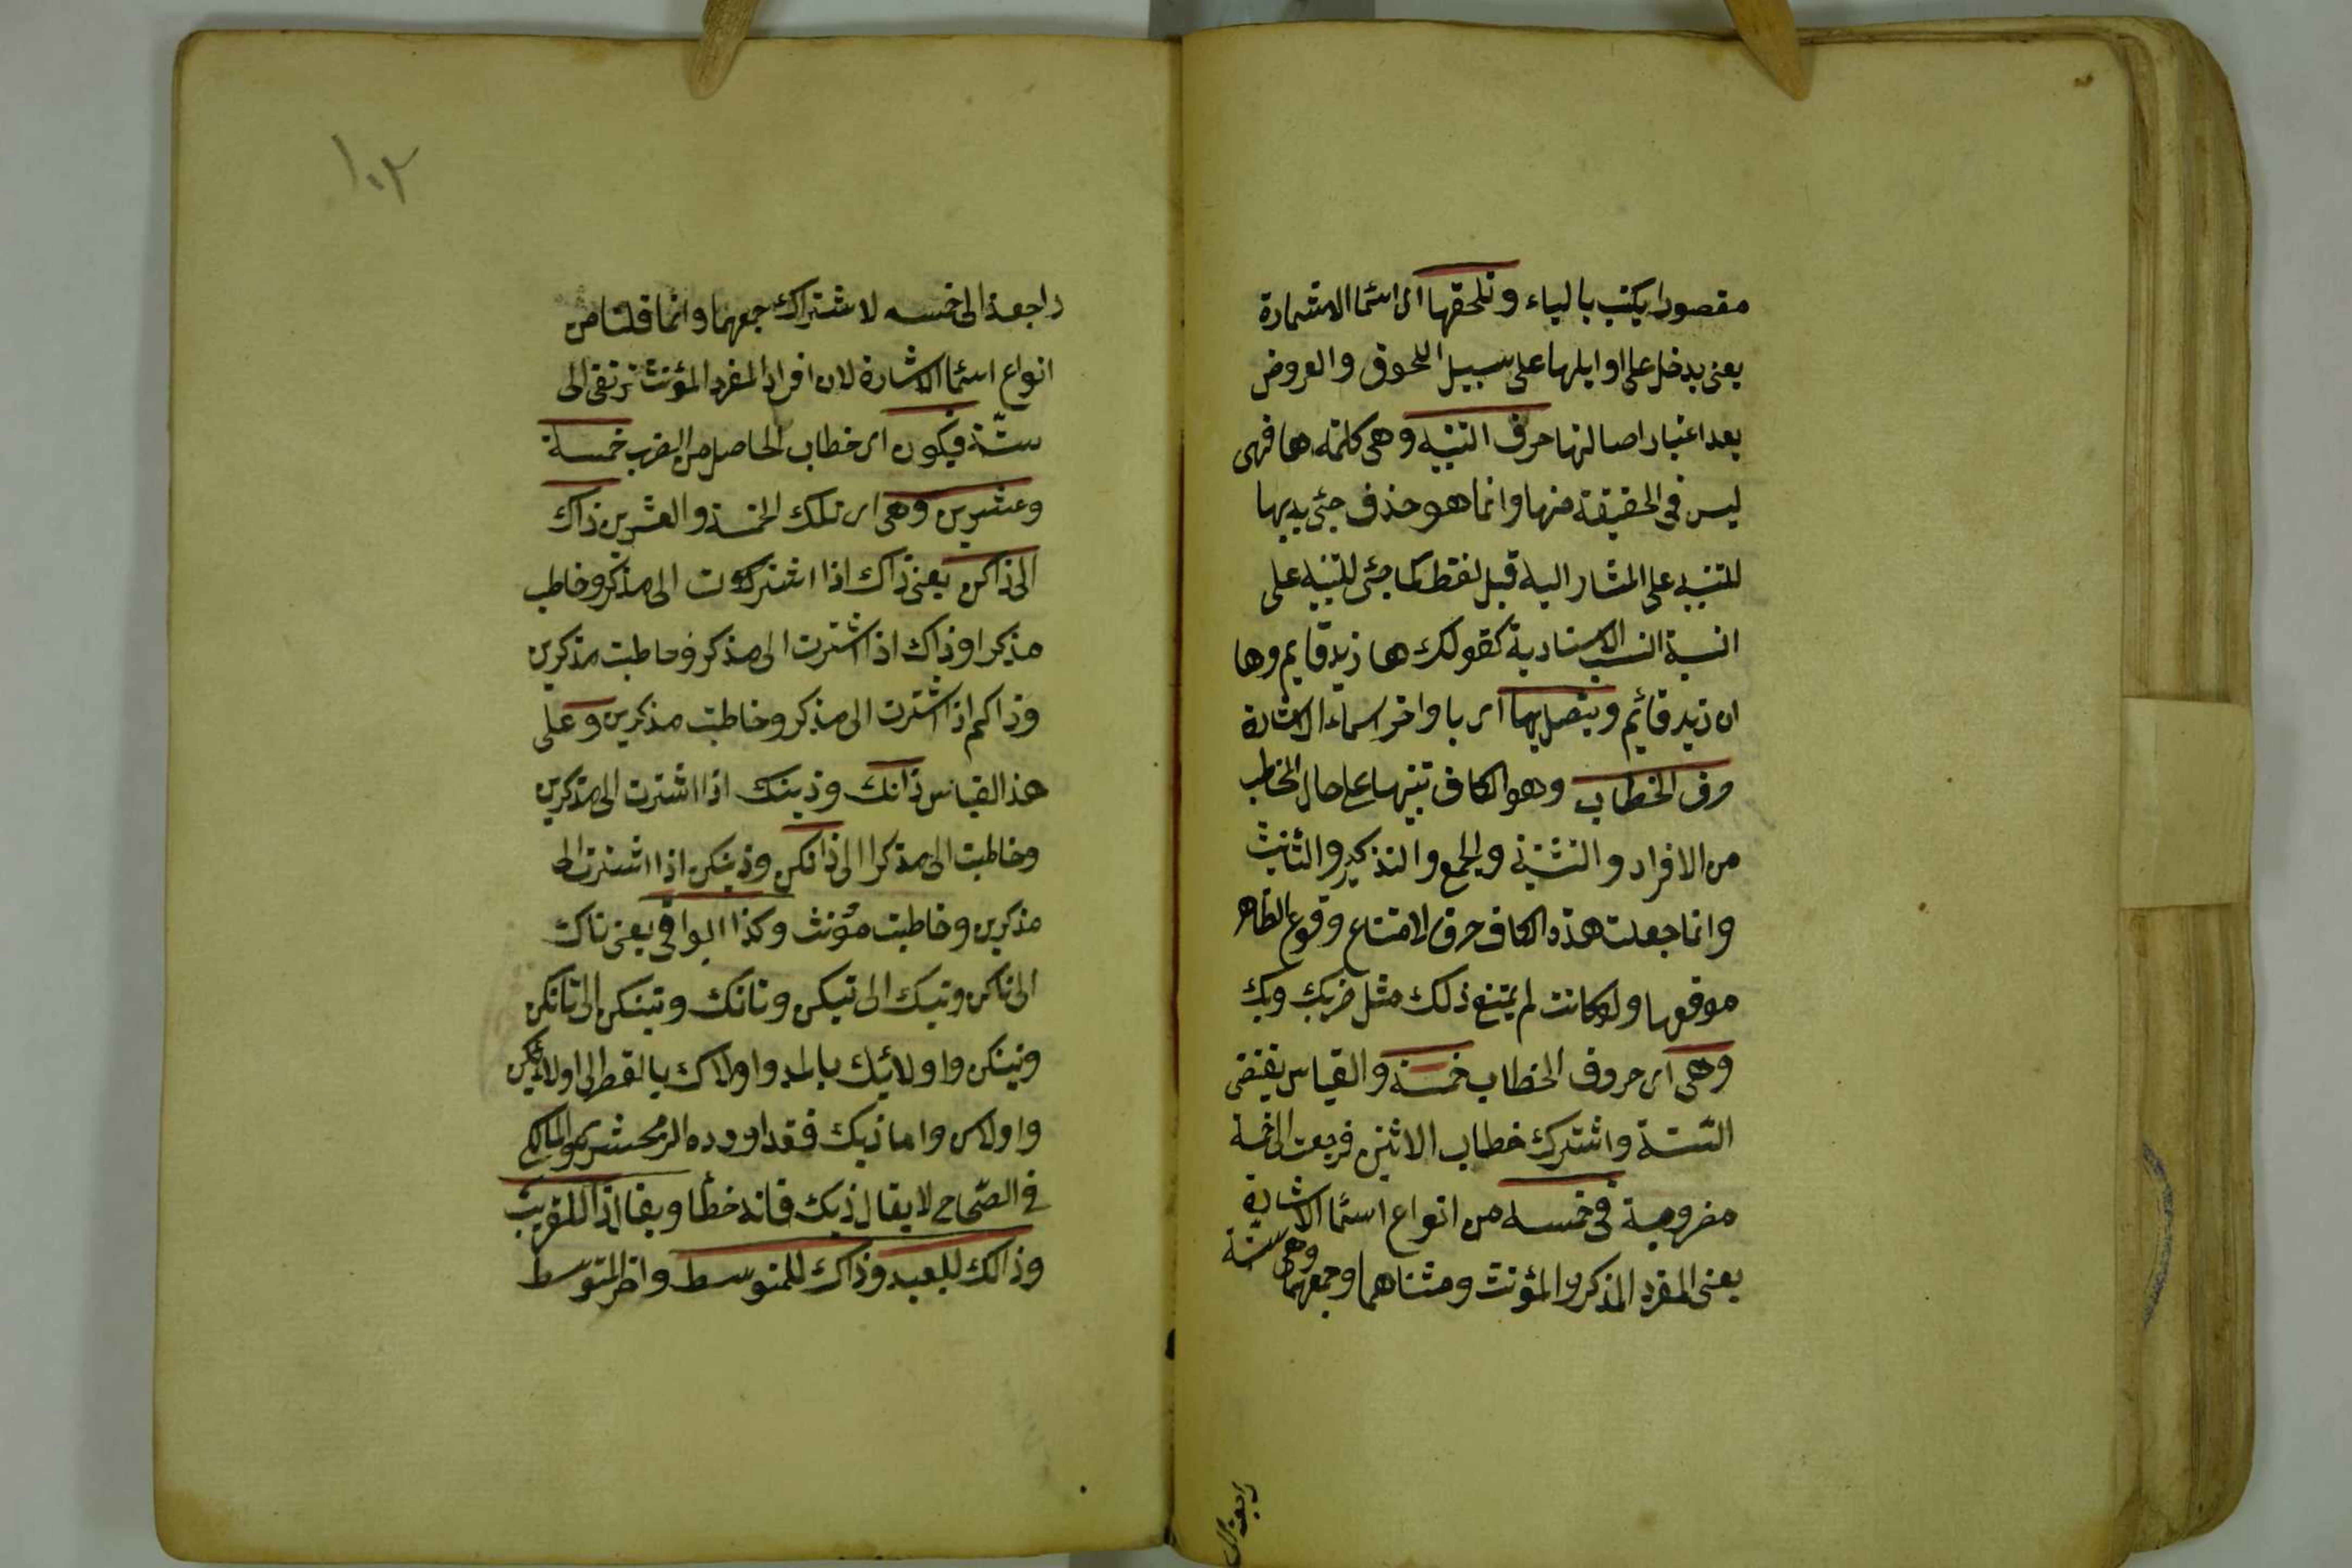 مقصورا يكتب بالياء وتلحقها اى اسما الاشارة
يعنى يدخل على اوايلها على سبيل اللحوق والعروض
بعد اعتبار اصالتها حرف التنبيه وهى كلمة ها فهى
ليس فى الحقيقة منها وانما هو حذف جئ بها
للتنبيه على المشار اليه قبل لفظ كما جئ للتنبيه على
النسبة الاسنادية كقولك ها زيد قايم وها
ان زيد قائم ويتصل بها اى باواخر اسماء الاشارة
حرف الخطاب وهو الكاف تنبيها على حال المخاطب
من الافراد والتثنية والجمع والتذكير والتانيث
وانما جعلت هذه الكاف حرف لامتناع وقوع الظاهر
موقعها ولو كانت لم يمتنع ذلك مثل ضربك وبك
وهى اى حروف الخطاب خمسة والقياس يقتضى
الستة واشترك خطاب الاثنين فرجعت الى خمسة
مضروبة فى خمسه من انواع اسما الاشارة
وهى ستة
يعنى المفرد المذكر والمؤنث ومثناهما وجمعهما
راجعة الى
١٠٢
راجعة الى خمسه لاشتراك جمعهما وانما قلنا من
انواع اسما الاشارة لان افراد المفرد المؤنث ترتقى الى
ستة فيكون اى خطاب الحاصل من الضرب خمسة
وعشرين وهى اى تلك الخمسة والعشرين ذاك
الى ذاكن يعنى ذاك اذا اشترت الى مذكر وخاطب
مذكرا وذاك اذا اشترت الى مذكر وخاطبت مذكرين
وذاكم اذا اشترت الى مذكر وخاطبت مذكرين وعلى
هذا القياس ذانك وذينك اذا اشترت الى مذكرين
وخاطبت الى مذكرا الى ذانكن وذينكن اذا اشترت الى
مذكرين وخاطبت مؤنث وكذا البواقى يعنى تاك
الى تاكن وتيك الى تيكن وتانك وتينكن الى تانكن
وتينكن واولائك بالمد واولاك بالقصر الى اولائكن
واولاكن واما ذيك فقد اورده الزمخشرى والمالكى
فى الصحاح لا يقال ذيك فانه خطأ ويقال ذا للقريب
وذالك للبعيد وذاك للمتوسط واخر المتوسط